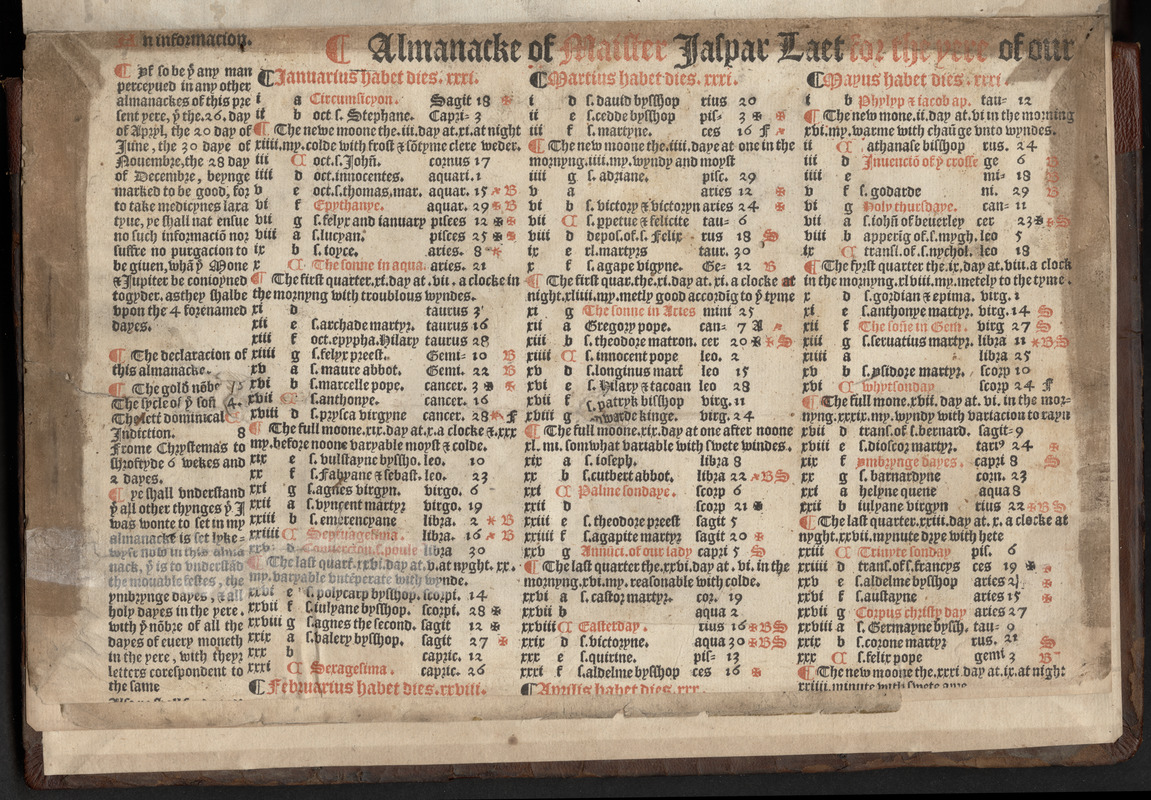 n informacion.
¶ Almanacke of Maister Jaspar Laet for the yere of our
¶ yf so be ꝧ any man
perceyued in any other
almanackes of this pre
sent yere, ꝧ the.26. day
of Apryl, the 20 day of
June, the 30 daye of
Nouembre, the 28 day
of Decembre, beynge
marked to be good, for
to take medicynes laxa
tyue, ye shall nat ensue
no such informaciō nor
suffre no purgacion to
be giuen, whā ꝧ Mone
& Jupiter be conioyned
togyder. as they shalbe
vpon the 4 forenamed
dayes.
¶ The declaracion of
this almanacke.
¶ The gold nōbe
The sycle of ꝧ son 4.
The lett dominical
Indiction. 8
Frome Chrystemas to
shroftyde 6 wekes and
2 dayes.
¶ ye shall vnderstand
ꝧ all other thynges ꝧ I
was wonte to set in my
almanacke is set lyke-
wyse now in this alma
nack, ꝧ is to vnderstād
the mouable festes, the
ymbrynge dayes, & all
holy dayes in the yere.
with ꝧ nōbre of all the
dayes of euery moneth
in the yere, with theyr
letters correspondent to
the same
¶ Januarius habet dies. xxxi.
i a Circumsicyon. Sagit 18 ✠
ii b oct s. Stephane. Capri= 3
¶ The newe moone the.iii.day at.xi.at night
xiiii.my.colde with frost & sōtyme clere weder.
iii ¶ oct.s.Johñ. cornus 17
iiii d oct.innocentes. aquari.1
v e oct.s.thomas.mar. aquar. 15 B
vi f Epythanye. aquar. 29 ✠ B
vii g s.felyx and ianuary pisces 12 ✠ ✠
viii a s.lucyan. pisces 25 ✠ ✠
ix b s.ioyce. aries. 8
x ¶ The sonne in aqua. aries. 21
¶ The first quarter.xi.day at .vii . a clocke in
the mornyng with troublous wyndes.
xi d taurus 3
xii e s.archade martyr. taurus 16
xiii f oct.eyppha.Hilary taurus 28
xiiii g s.felyx preest. Gemi= 10 B
xv a s. maure abbot. Gemi. 22 B
xvi b s.marcelle pope. cancer. 3 ✠
xvii ¶ s.anthonye. cancer. 16
xviii d s.prysca virgyne cancer. 28 F
¶ The full moone.xix.day at.x.a clocke &.xxx
my.before noone varyable moyst & colde.
xix e s. vulstayne byssho. leo. 10
xx f s.Fabyane & sebast. leo. 23
xxi g s.agnes virgyn. virgo. 6
xxii a s.vyncent martyr virgo. 19
xxiii b s. emerencyane libra. 2 B
xxiiii ¶ Septuagesima. libra. 16 B
xxv d Conuercion.s.poule libra 30
¶ The last quart.xxvi.day at.v.at nyght. xx.
my.varyable vntēperate with wynde.
xxvi e s.polycarp byshop. scorpi. 14
xxvii f s.iulyane byshop. scorpi. 28 ✠
xxviii g s.agnes the second. sagit 12 ✠
xxix a s.valery byshop. sagit 27 ✠
xxx b capric. 12
xxxi ¶ Sexagesima. capric. 26
¶ Februarius habet dies.xxviii.
¶ Martius habet dies. xxxi.
i d s.dauid bysshop rius 20
ii e s.cedde bysshop pis= 3 ✠ ✠
iii f s.martyne. ces 16 F
¶ The new moone the.iiii.daye at one in the
mornyng.iiii.my.wyndy and moyst
iiii g s. adriane. pisc. 29
v a aries 12 ✠
vi b s. victory & victoryn aries 24 ✠
vii ¶ s. ppetue & felicite tau= 6
viii d depos.of.s. Felix rus 18 S
ix e xl.martyrs taur. 30
x f s.agape vigyne. Ge= 12 B
¶ The first quar.the.xi.day at. xi. a clocke at
night.xliii.my.metly good accordig to ꝧ tyme
xi g The sonne in Aries mini 25
xii a Gregory pope. can= 7 A
xiii b s. theodore matron. cer 20 ✠ ✠ S
xiiii ¶ s. innocent pope leo. 2
xv d s.longinus mart leo 15
xvi e s. Hilary & tacoan leo 28
xvii f s.patryk bisshop virg. 11
xviii g edwarde kinge. virg. 24
¶ The full moone.xix.day at one after noone
xl. mi. somwhat variable with swete windes.
xix a s. ioseph. libra 8
xx b s.cutbert abbot. libra 22 BS
xxi ¶ Palme sondaye. scorp 6
xxii d scorp 21 ✠
xxiii e s.theodore preest sagit 5
xxiiii f s.agapite martyr sagit 20 ✠
xxv g Annūci. of our lady capri 5 S
¶ The last quarter the.xxvi.day at .vi. in the
mornyng.xvi.my. reasonable with colde.
xxvi a s.castor martyr. cor. 19
xxvii b aqua 2
xxviii ¶ Easterday. rius 16 ✠BS
xxix d s.victoryne. aqua 30 ✠BS
xxx e s.quirine. pis= 13
xxxi f s.aldelme bysshop ces 16 ✠
¶ Aprilis habet dies.xxx.
¶ Mayus habet dies. xxxi
i b Phylyp & iacob ap. tau= 12
¶ The new mone.ii.day at.vi in the morning
xvi.my.warme with chaūge vnto wyndes.
ii ¶ athanase bisshop rus. 24
iii d Inuenciō of ꝧ crosse ge 6 B
iiii e mi= 18 B
v f s. godarde ni. 29 B
vi g Holy thursdaye. can= 11
vii a s.iohñ of beuerley cer 23✠ S
viii b apperig of.s.mygh. leo 5
ix ¶ transl.of.s.nychol. leo 18
¶ The fyrst quarter the.ix.day at.viii.a clock
in the mornyng.xlviii.my.metely to the tyme.
x d s.gordian & epima. virg. 1
xi e s.anthonye martyr. virg.14 S
xii f The sonne in Gemi. virg 27 S
xiii g s.seruatius martyr. libra 11 BS
xiiii a libra 25
xv b s.ysidore martyr. scorp 10
xvi ¶ whytsonday scorp 24 F
¶ The full mone.xvii. day at. vi. in the mor=
nyng.xxxix.my.wyndy with variacion to rayn
xvii d trans.of s.bernard. sagit=9
xviii e s.dioscor martyr. tari9 24 ✠
xix f ymbrynge dayes. capri 8 S
xx g s.barnardyne corn. 23
xxi a helyne quene aqua 8
xxii b iulyane virgyn rius 22 ✠BS
¶ The last quarter.xxiii.day at. x. a clocke at
nyght.xxvii.mynute drye with hete
xxiii ¶ Trinyte sonday pis. 6
xxiiii d trans.of s.francys ces 19 ✠
xxv e s.aldelme bysshop aries 2
xxvi f s.austayne aries 15 ✠
xxvii g Corpus christy day aries 27
xxviii a s. Germayne byssh. tau= 9
xxix b s.corone martyr rus. 21 S
xxx ¶ s.felix pope gemi 3 B
¶ The new moone the.xxxi day at.ix.at night
xxiiii.minute with swete ayre